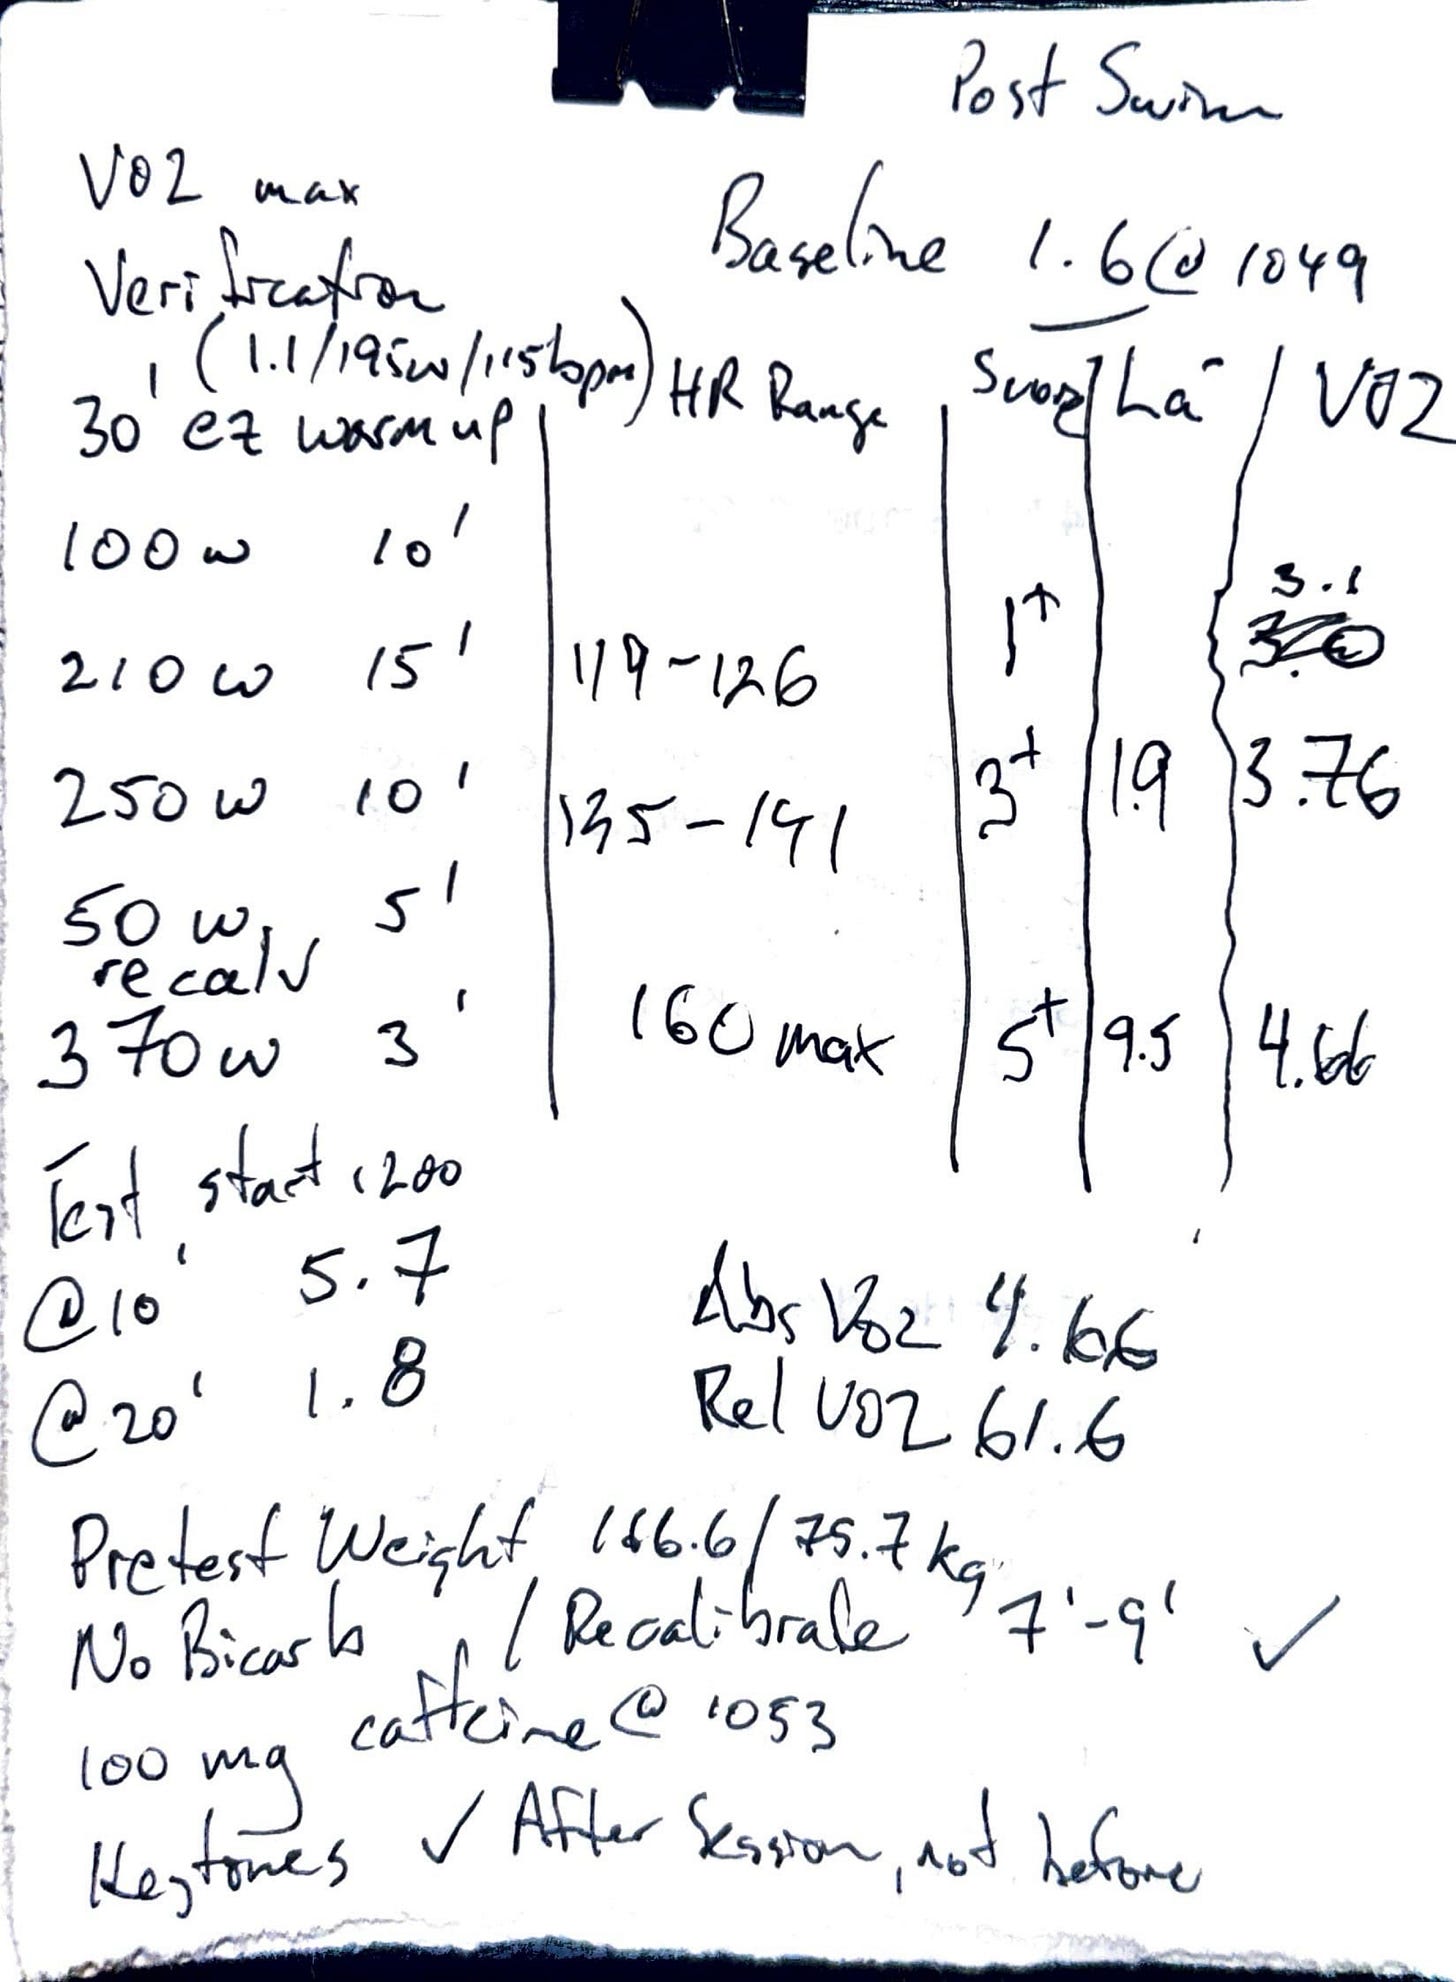 Post Swim
VO2 max
Baseline 1.6 @ 1049
Verification
(1.1/195w/115bpm)
30' ez warm up HR Range La- / VO2
100 w 10'
210 w 15' 119-126 1+ 3.1
250 w 10' 135-141 3+ 1.9 3.76
50 w 5'
recal √
370 w 3' 160 max 5+ 9.5 4.66
Test start 1200
@10' 5.7
@20' 1.8
Abs VO2 4.66
Rel VO2 61.6
Pretest Weight 166.6/75.7 kg
No Bicarb / Recalibrate 7'-9' ✓
100 mg caffeine @ 1053
Keytones ✓ After Session, not before